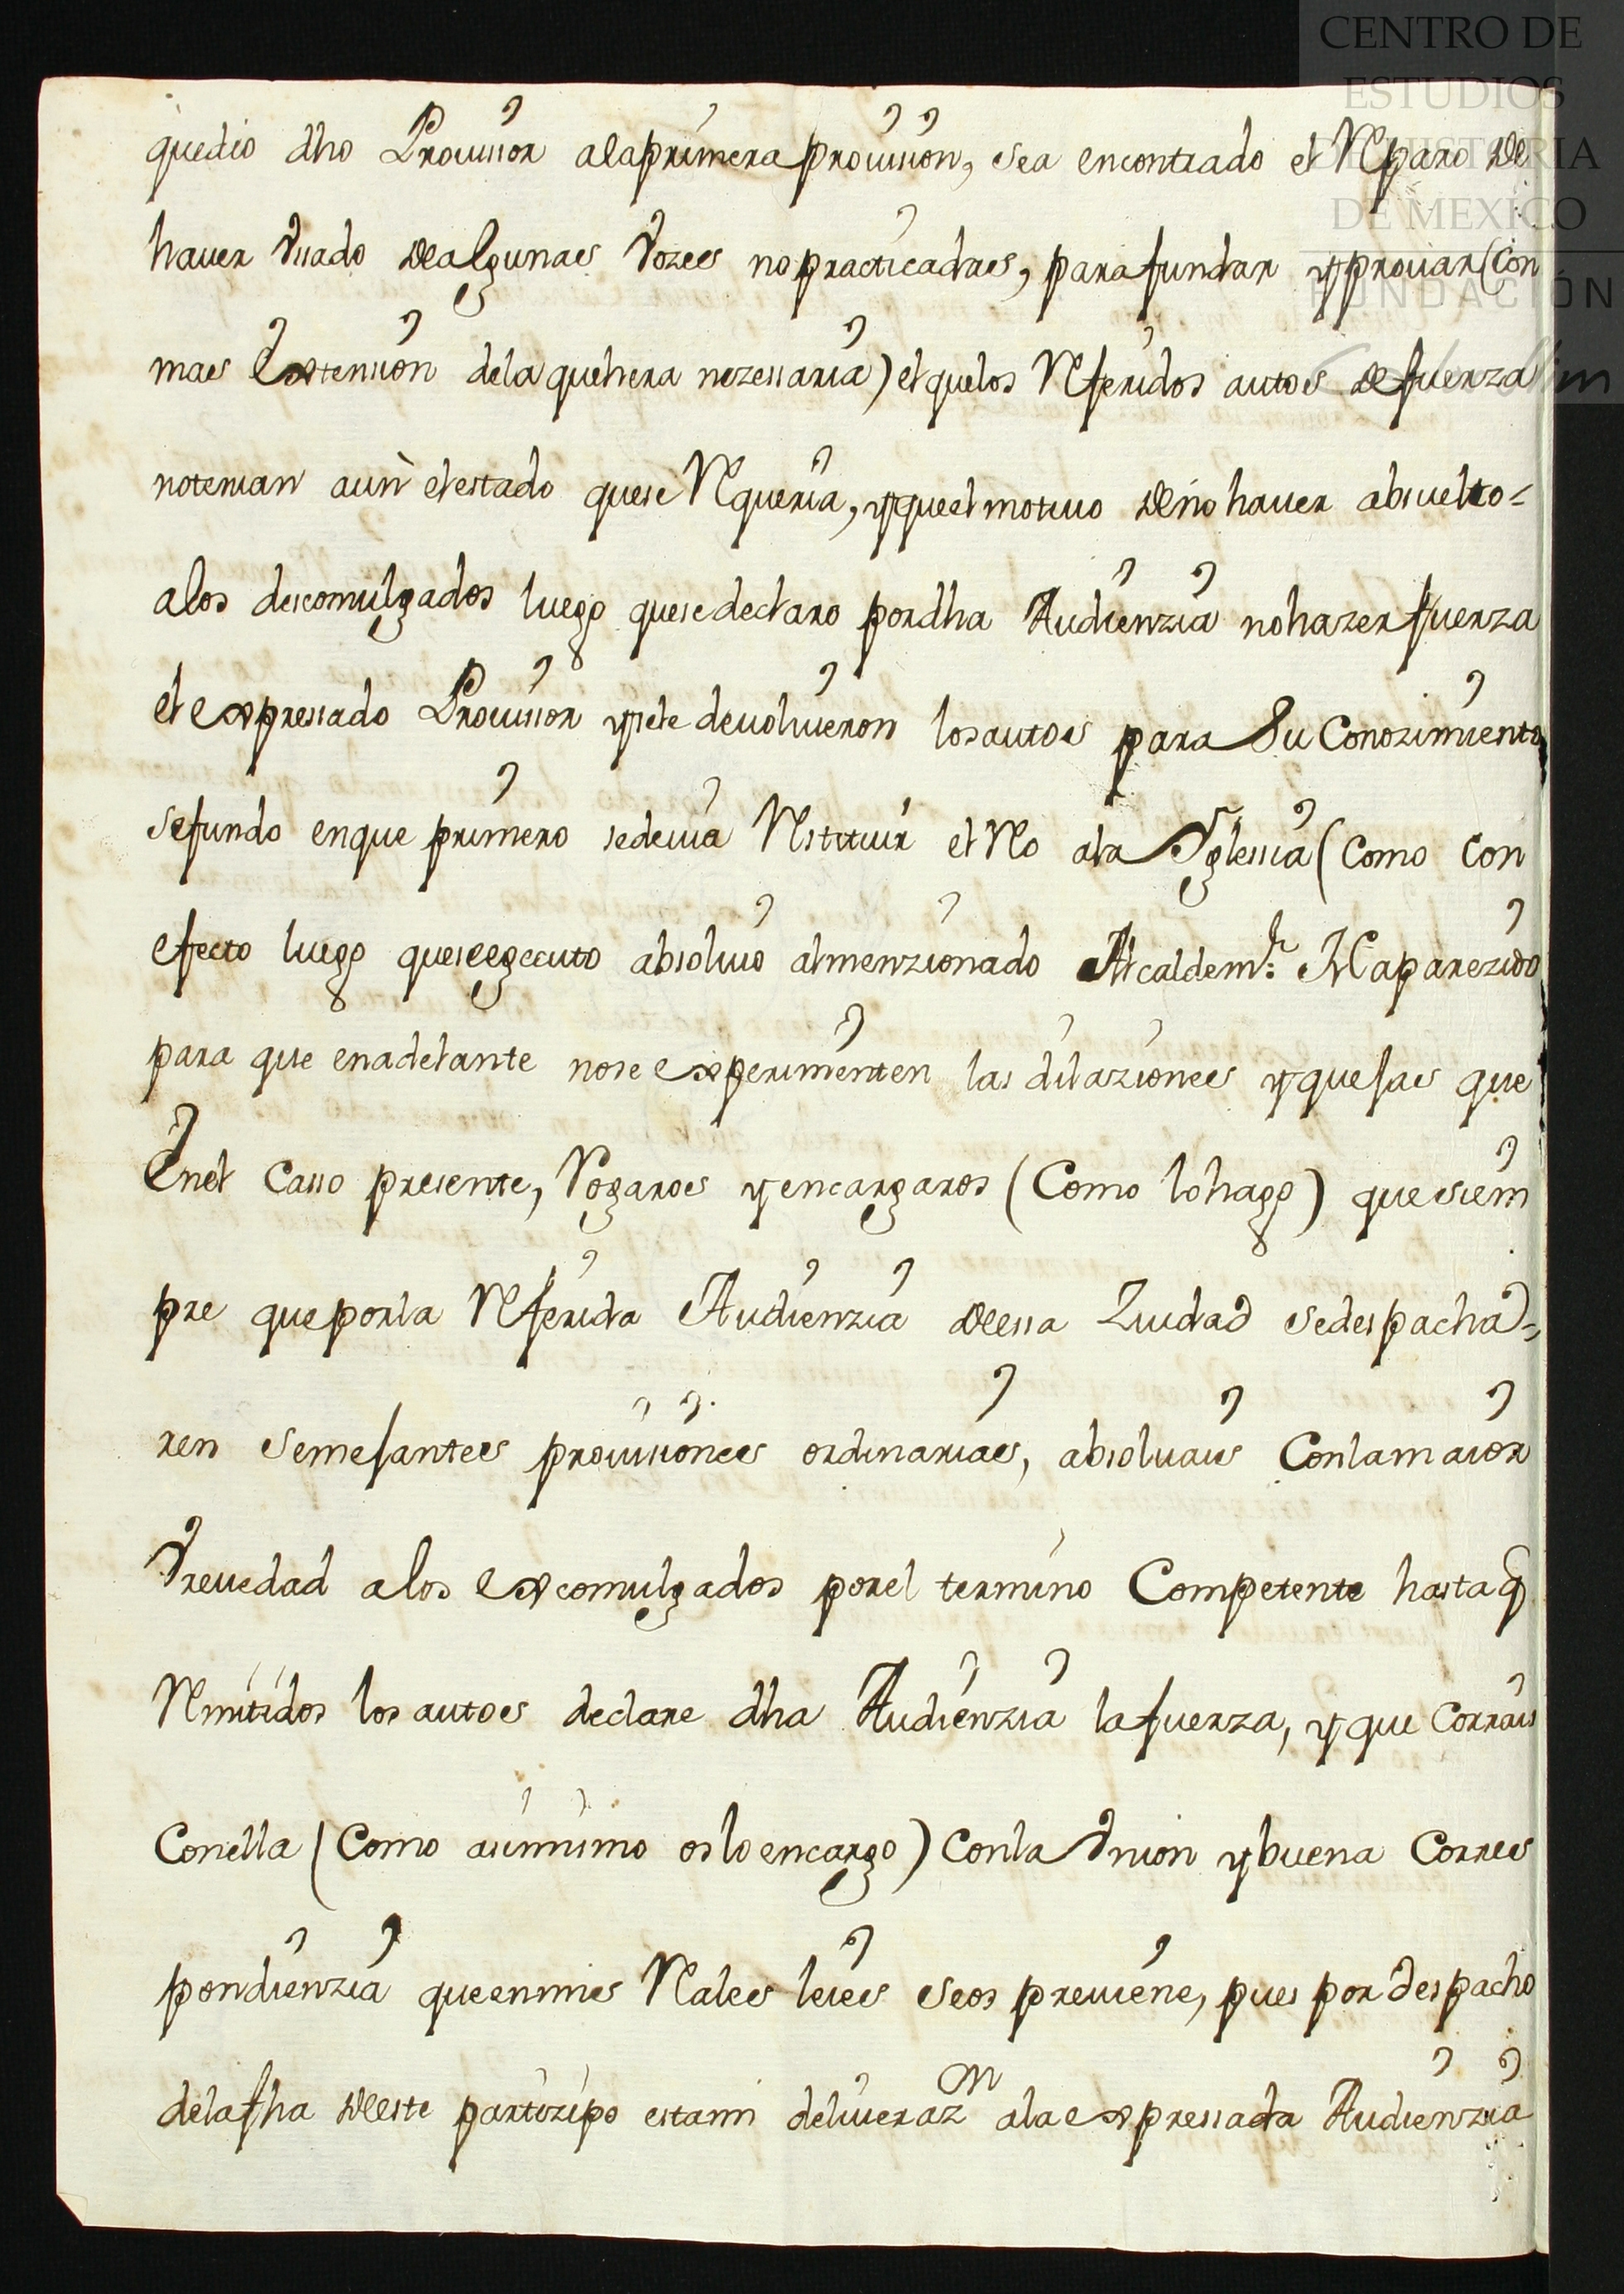 CENTRO DE
ESTUDIOS
DE HISTORIA
DE MEXICO
FUNDACIÓN
quedio dho Prouissor alaprimera prouission, sea encontrado el Reparo de
hauer Vsado dealgunas Vozes nopracticadas, parafundar yprouar (Con
mas Extension dela quehera nezessaria) elquelos Referidos autos defuerza
notenian aun elestado quese Requeria, yqueel motiuo deno hauer absuelto-
alos descomulgados luego quesedeclaro pordha Audienzia nohazer fuerza
el expressado Prouissor ysele deuoluieron losautos para Su Conozimiento
sefundo enque primero sedeuia Restituir el Reo ala Yglessia (Como Con
efecto luego queseegecuto absoluio almenzionado Alcaldem.r Haparezido
para que enadelante nose experimenten las dilaziones yquejas que
Enel Casso presente, Rogaros yencargaros (Como lohago) quesiem
pre queporla Referida Audienzia deessa Ziudad sedespacha-
ren semejantes prouissiones ordinarias, absoluais Conlamaior
Vreuedad alos excomulgados porel termino Competente hasta q
Remitidos los autos declare dha Audienzia lafuerza, yque Corrais
Conella (Como asimismo osloencargo) Conla Vnion ybuena Corres
pondienzia queenmis Reales leies seos preuiene, pues por despacho
delafha deeste partizipo estami deliuerazon ala expressada Audienzia